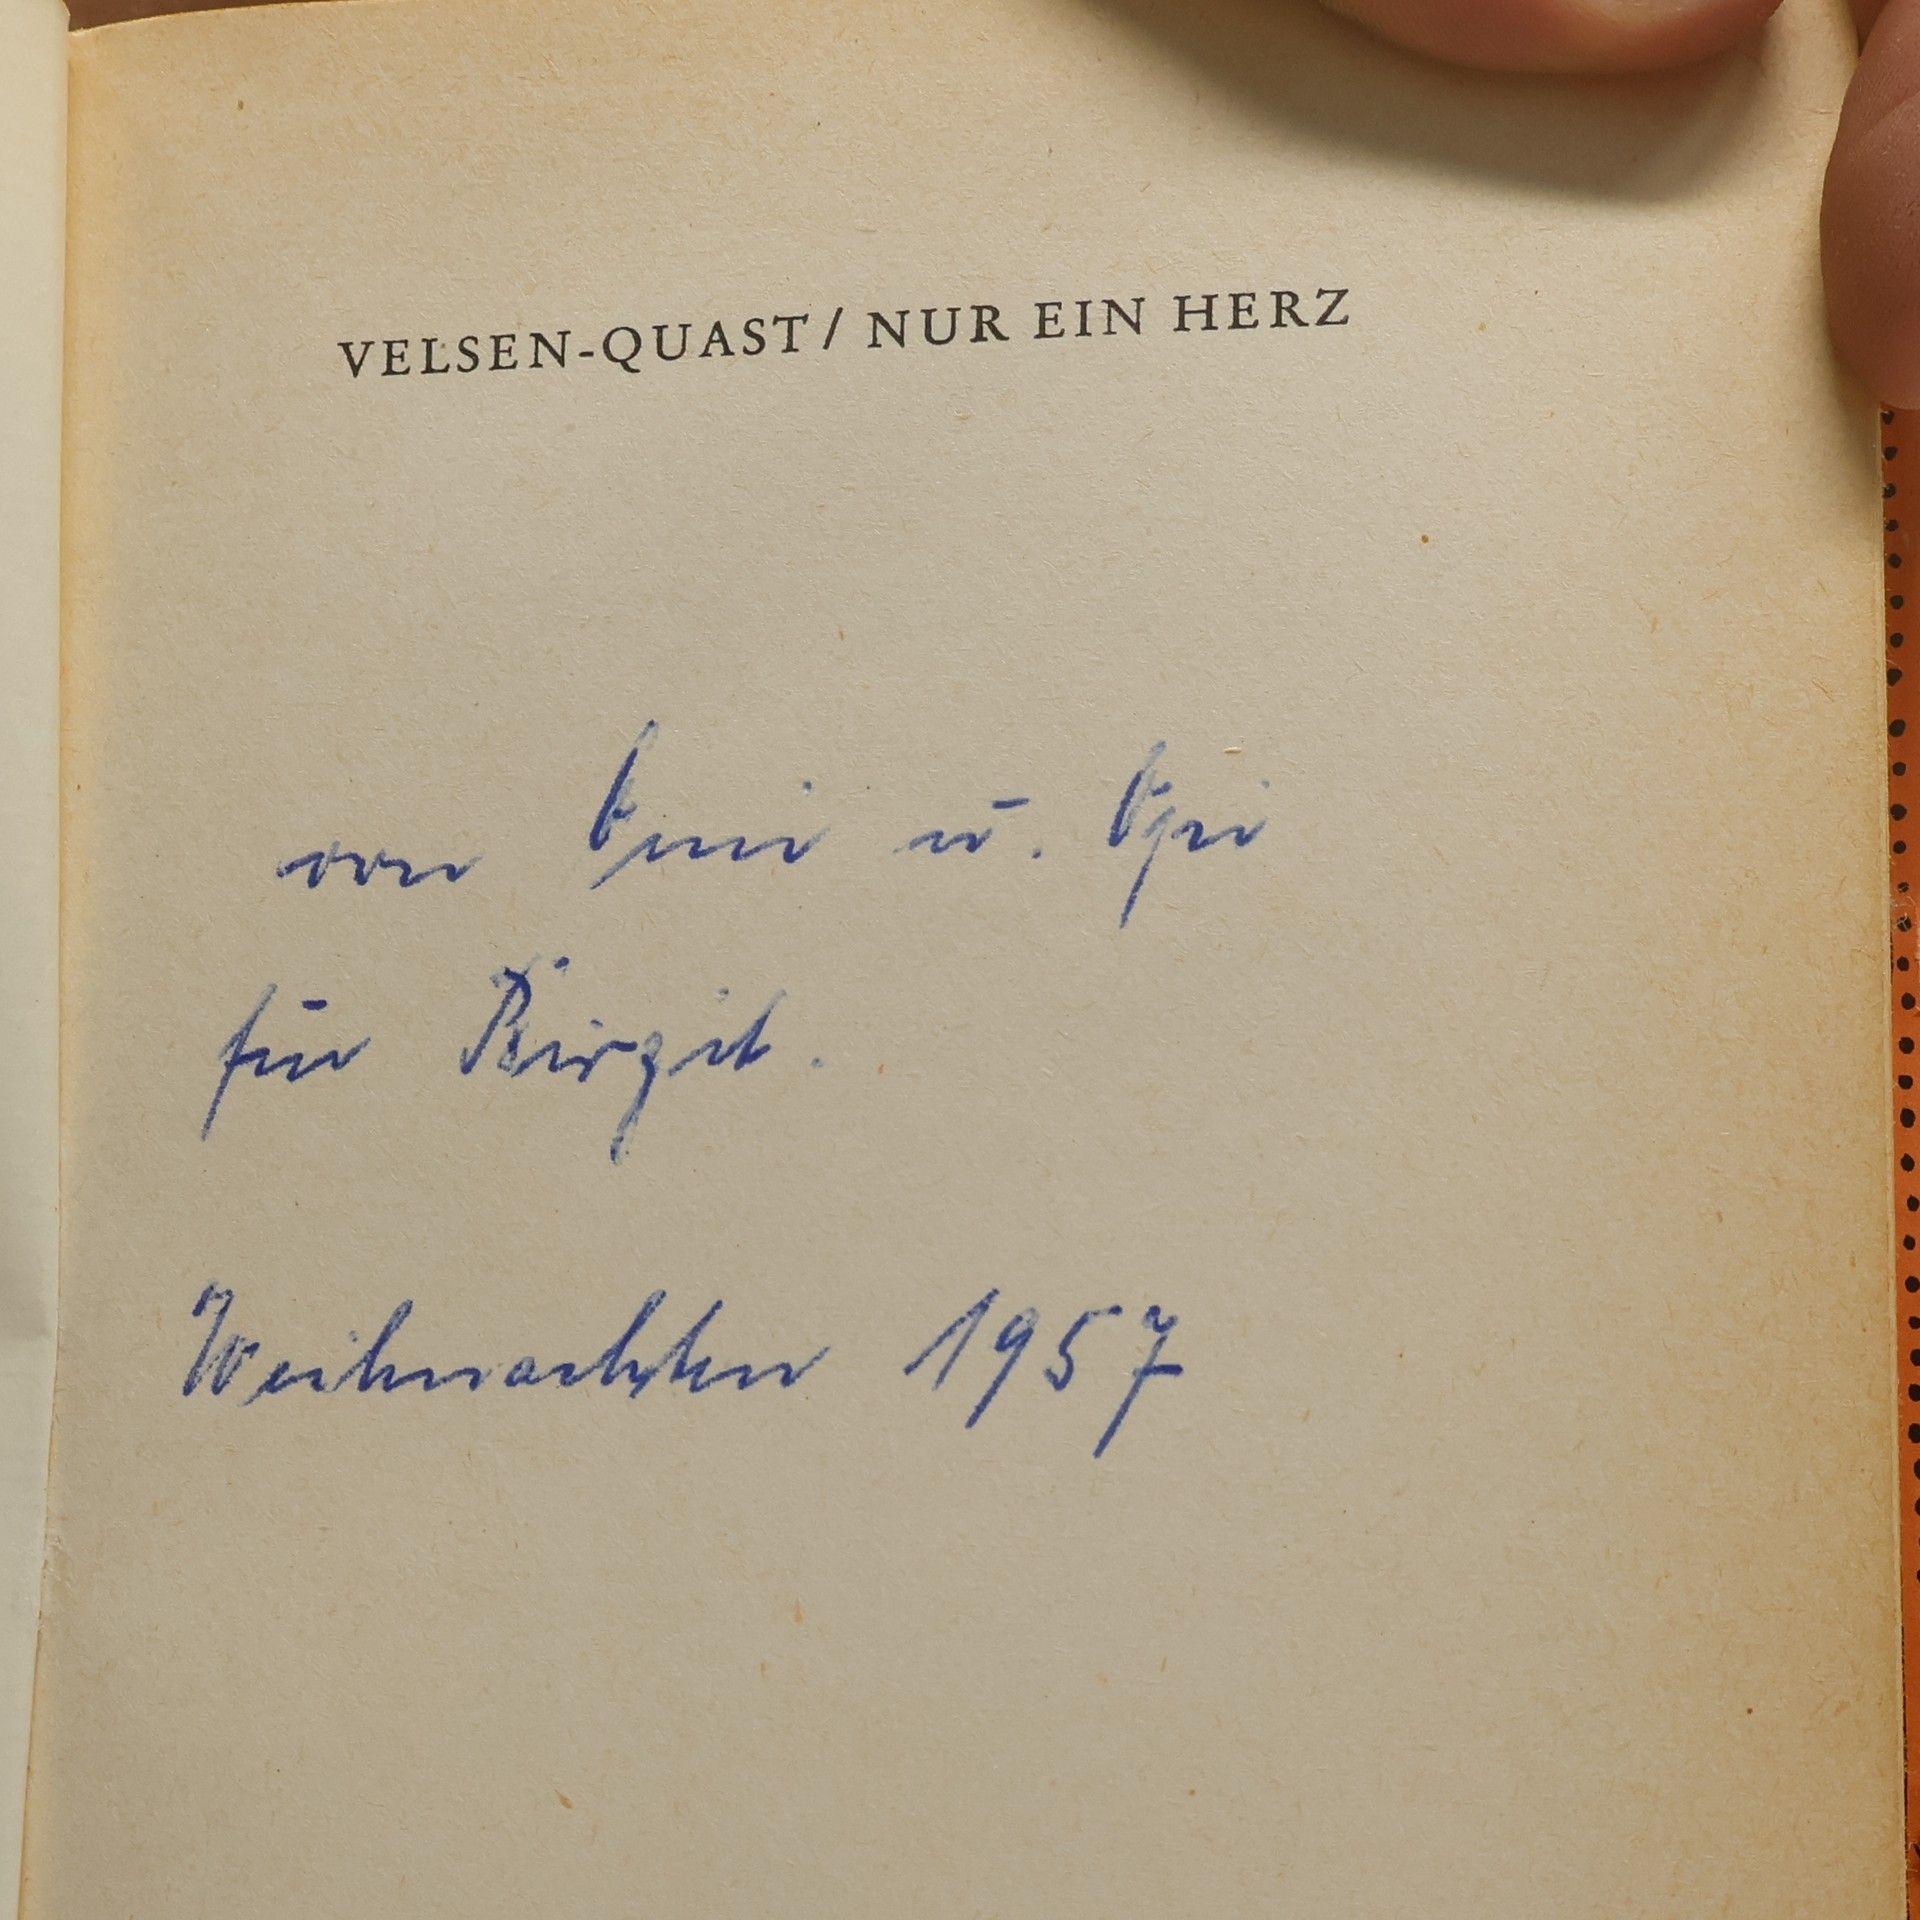 VELSEN-QUAST / NUR EIN HERZ
von Omi u. Opi
für Birgit.
Weihnachten 1957